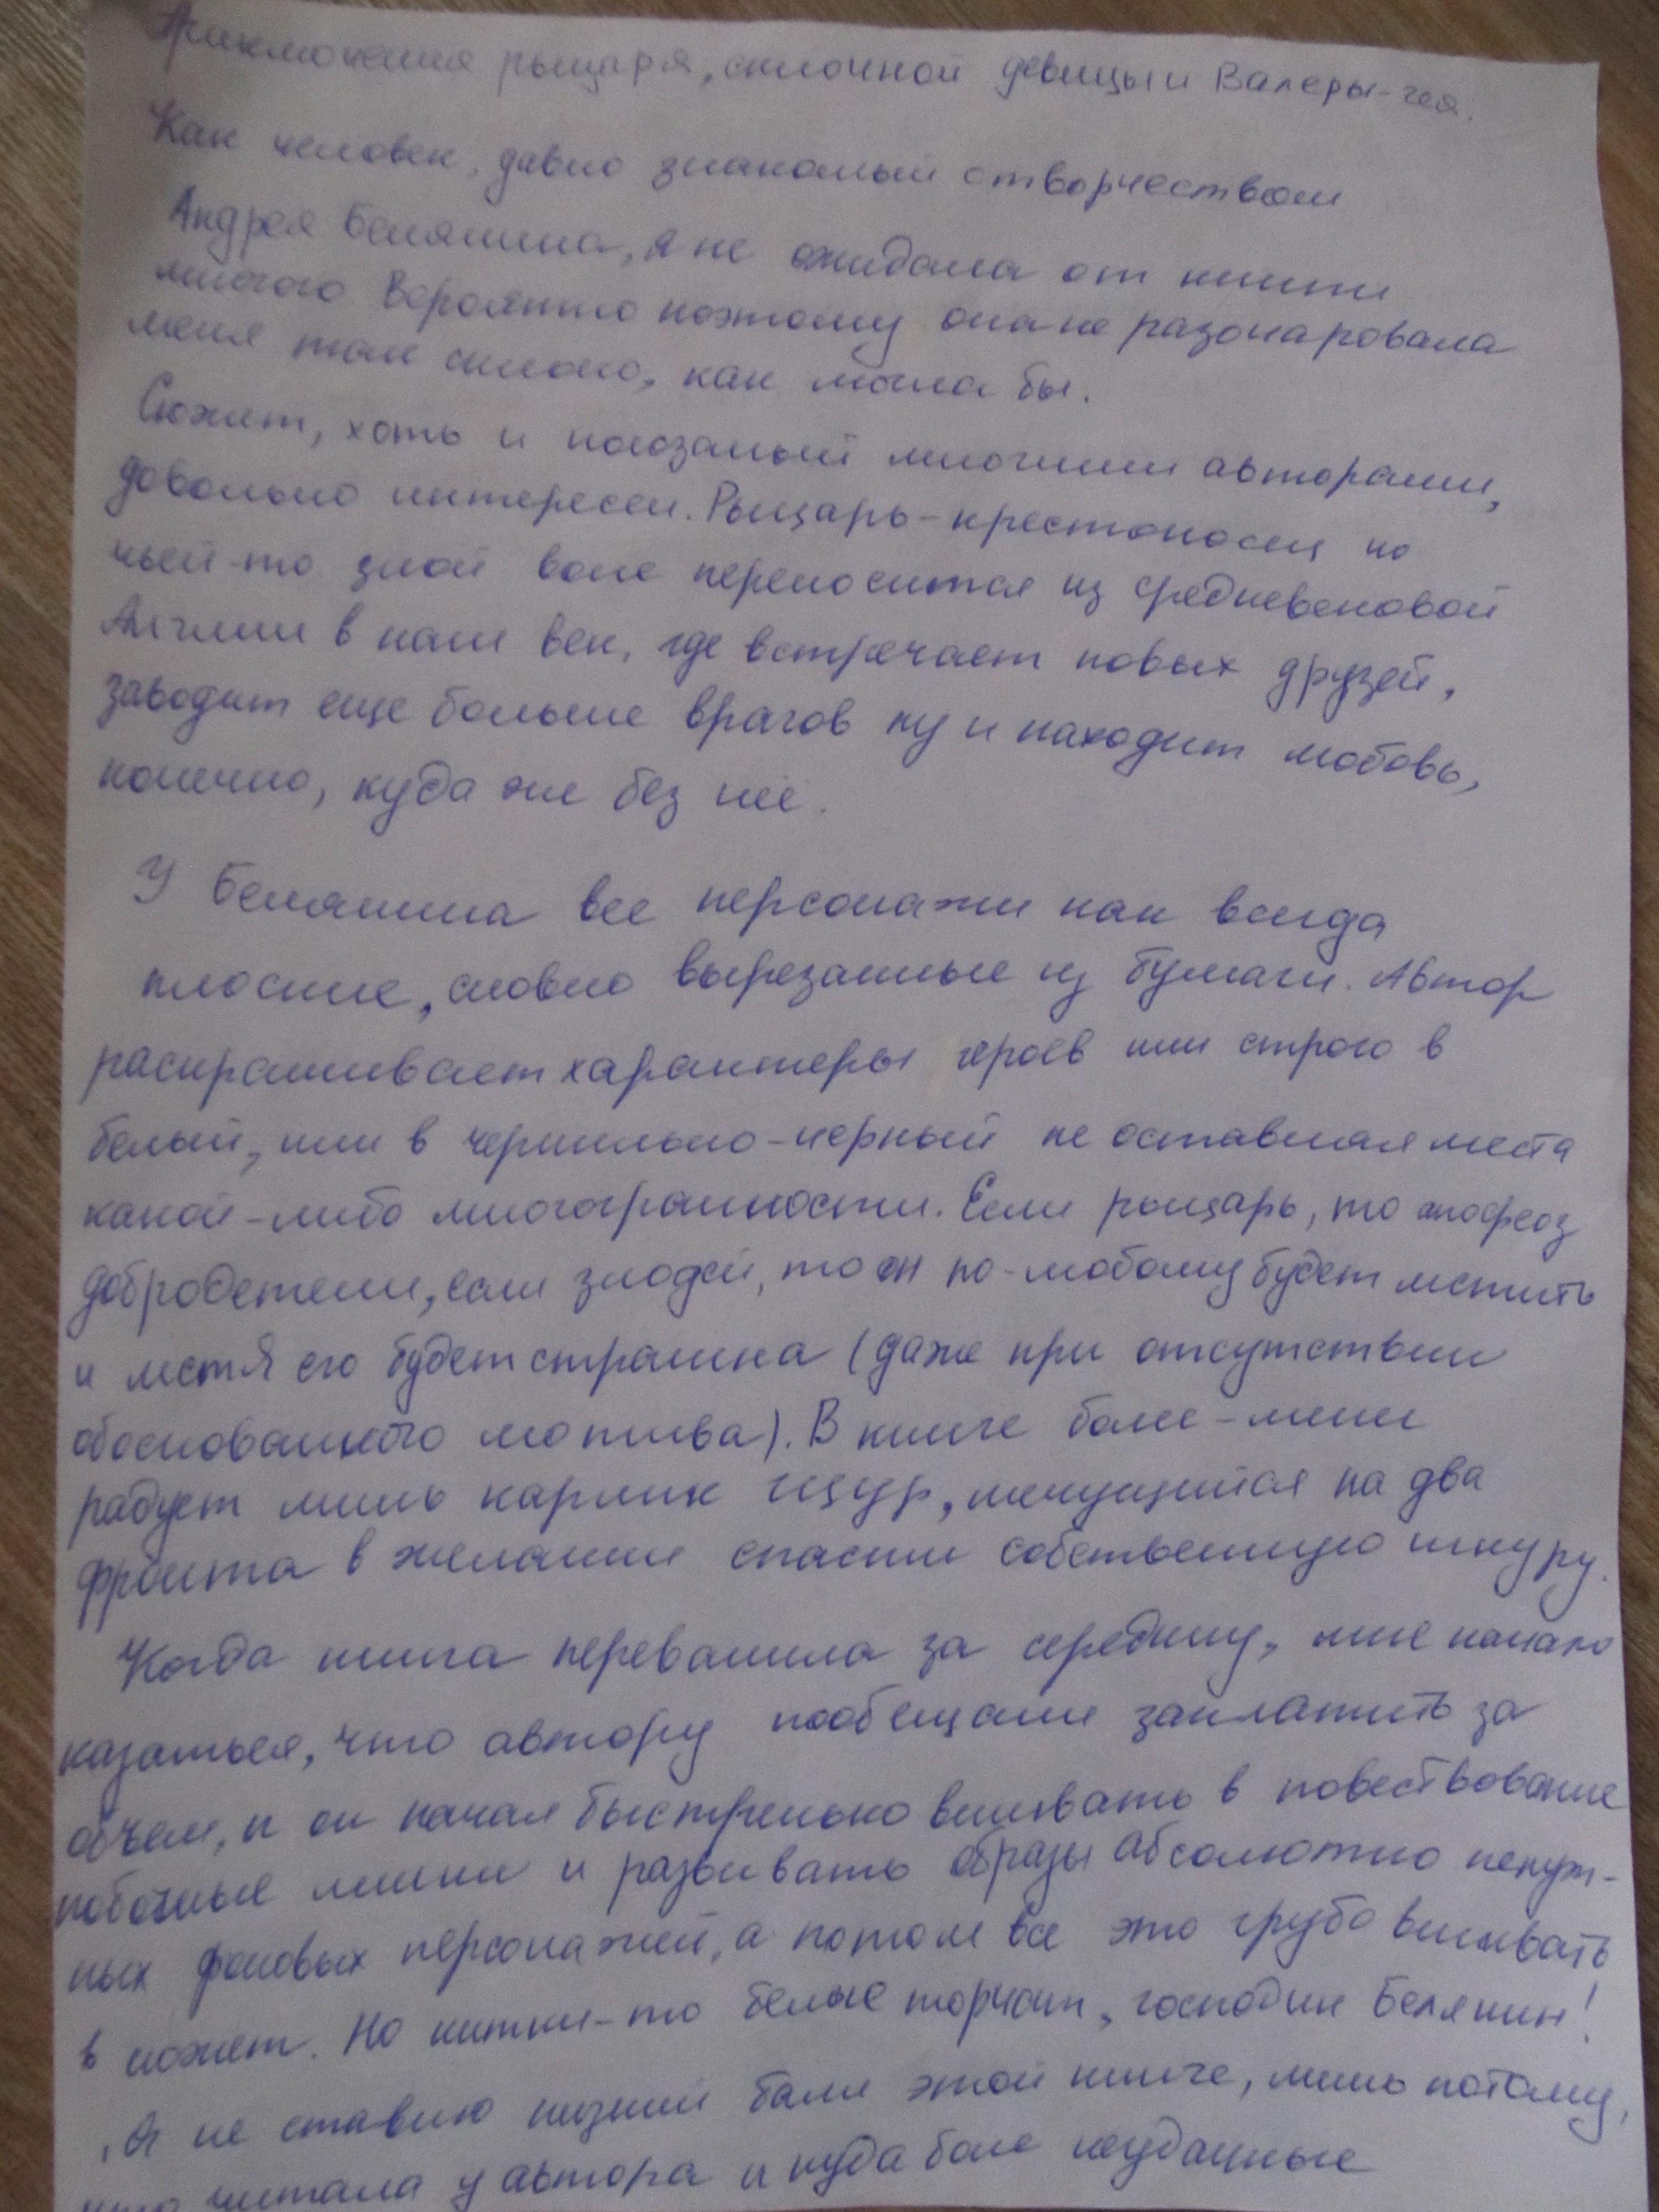 Приключения рыцаря, склочной девицы и Валеры-гея.
Как человек, давно знакомый с творчеством
Андрея Белянина, я не ожидала от книги
многого Вероятно поэтому она не разочаровала
меня так сильно, как могла бы.
Сюжет, хоть и изъезженый многими авторами,
довольно интересен. Рыцарь-крестоносец по
чьей-то злой воле переносится из средневековой
Англии в наш век, где встречает новых друзей,
заводит еще больше врагов ну и находит любовь,
конечно, куда же без нее.
У Белянина все персонажи как всегда
плоские, словно вырезанные из бумаги. Автор
раскрашивает характеры героев или строго в
белый, или в чернильно-черный не оставляя места
какой-либо многогранности. Если рыцарь, то апофеоз
добродетели, если злодей, то он по-любому будет мстить
и мстя его будет страшна (даже при отсутствии
обоснованного мотива). В книге более-менее
радует лишь карлик Щур, мечущийся на два
фронта в желании спасти собственную шкуру.
Когда книга перевалила за середину, мне начало
казаться, что автору пообещали заплатить за
объем, и он начал быстренько вшивать в повествование
побочные линии и развивать образы абсолютно ненуж-
ных фоновых персонажей, а потом все это грубо вшивать
в сюжет. Но нитки-то белые торчат, господин Белянин!
Я не ставлю низкий балл этой книге, лишь потому,
что читала у автора и куда более неудачные